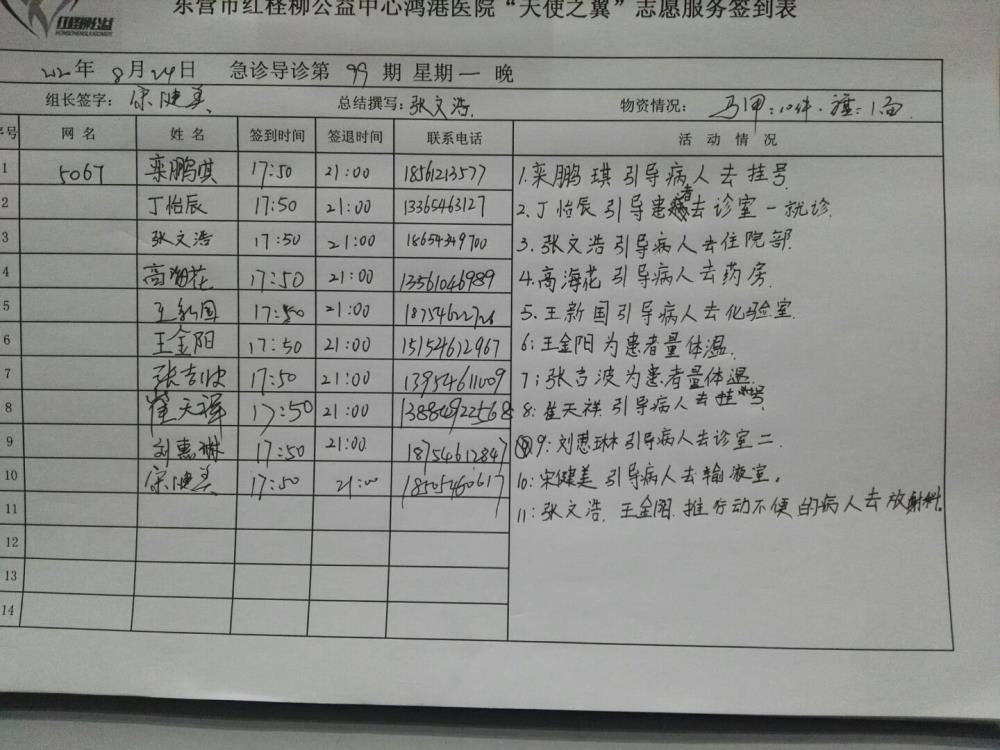 东营市红柽柳公益中心鸿港医院“天使之翼”志愿服务签到表
红柽柳公益
年 8月24日 急诊导诊第 99 期 星期一 晚
组长签字: 宋健美 总结撰写: 张文浩. 物资情况: 马甲:10件.
序号 网名 姓名 签到时间 签退时间 联系电话 活动情况
1 5067 栾鹏琪 17:50 21:00 18561213577 1.栾鹏琪引导病人去挂号
2 丁怡辰 17:50 21:00 13365463127 2.丁怡辰引导患者去诊室一就诊.
3 张文浩 17:50 21:00 18654349700 3.张文浩引导病人去住院部.
4 高海花 17:50 21:00 13561046989 4.高海花引导病人去药房.
5 王新国 17:50 21:00 5.王新国引导病人去化验室.
6 王金阳 17:50 21:00 15154612967 6:王金阳为患者量体温.
7 张吉波 17:50 21:00 13954611009 7:张吉波为患者量体温.
8 崔天祥 17:50 21:00 13884922568 8:崔天祥引导病人去挂号
9 刘惠琳 17:50 21:00 18754612847 9:刘惠琳引导病人去诊室二.
10 宋健美 17:50 21:00 18505460617 10:宋健美引导病人去输液室.
11 11:张文浩.王金阳.推行动不便的病人去放射科.
12
13
14